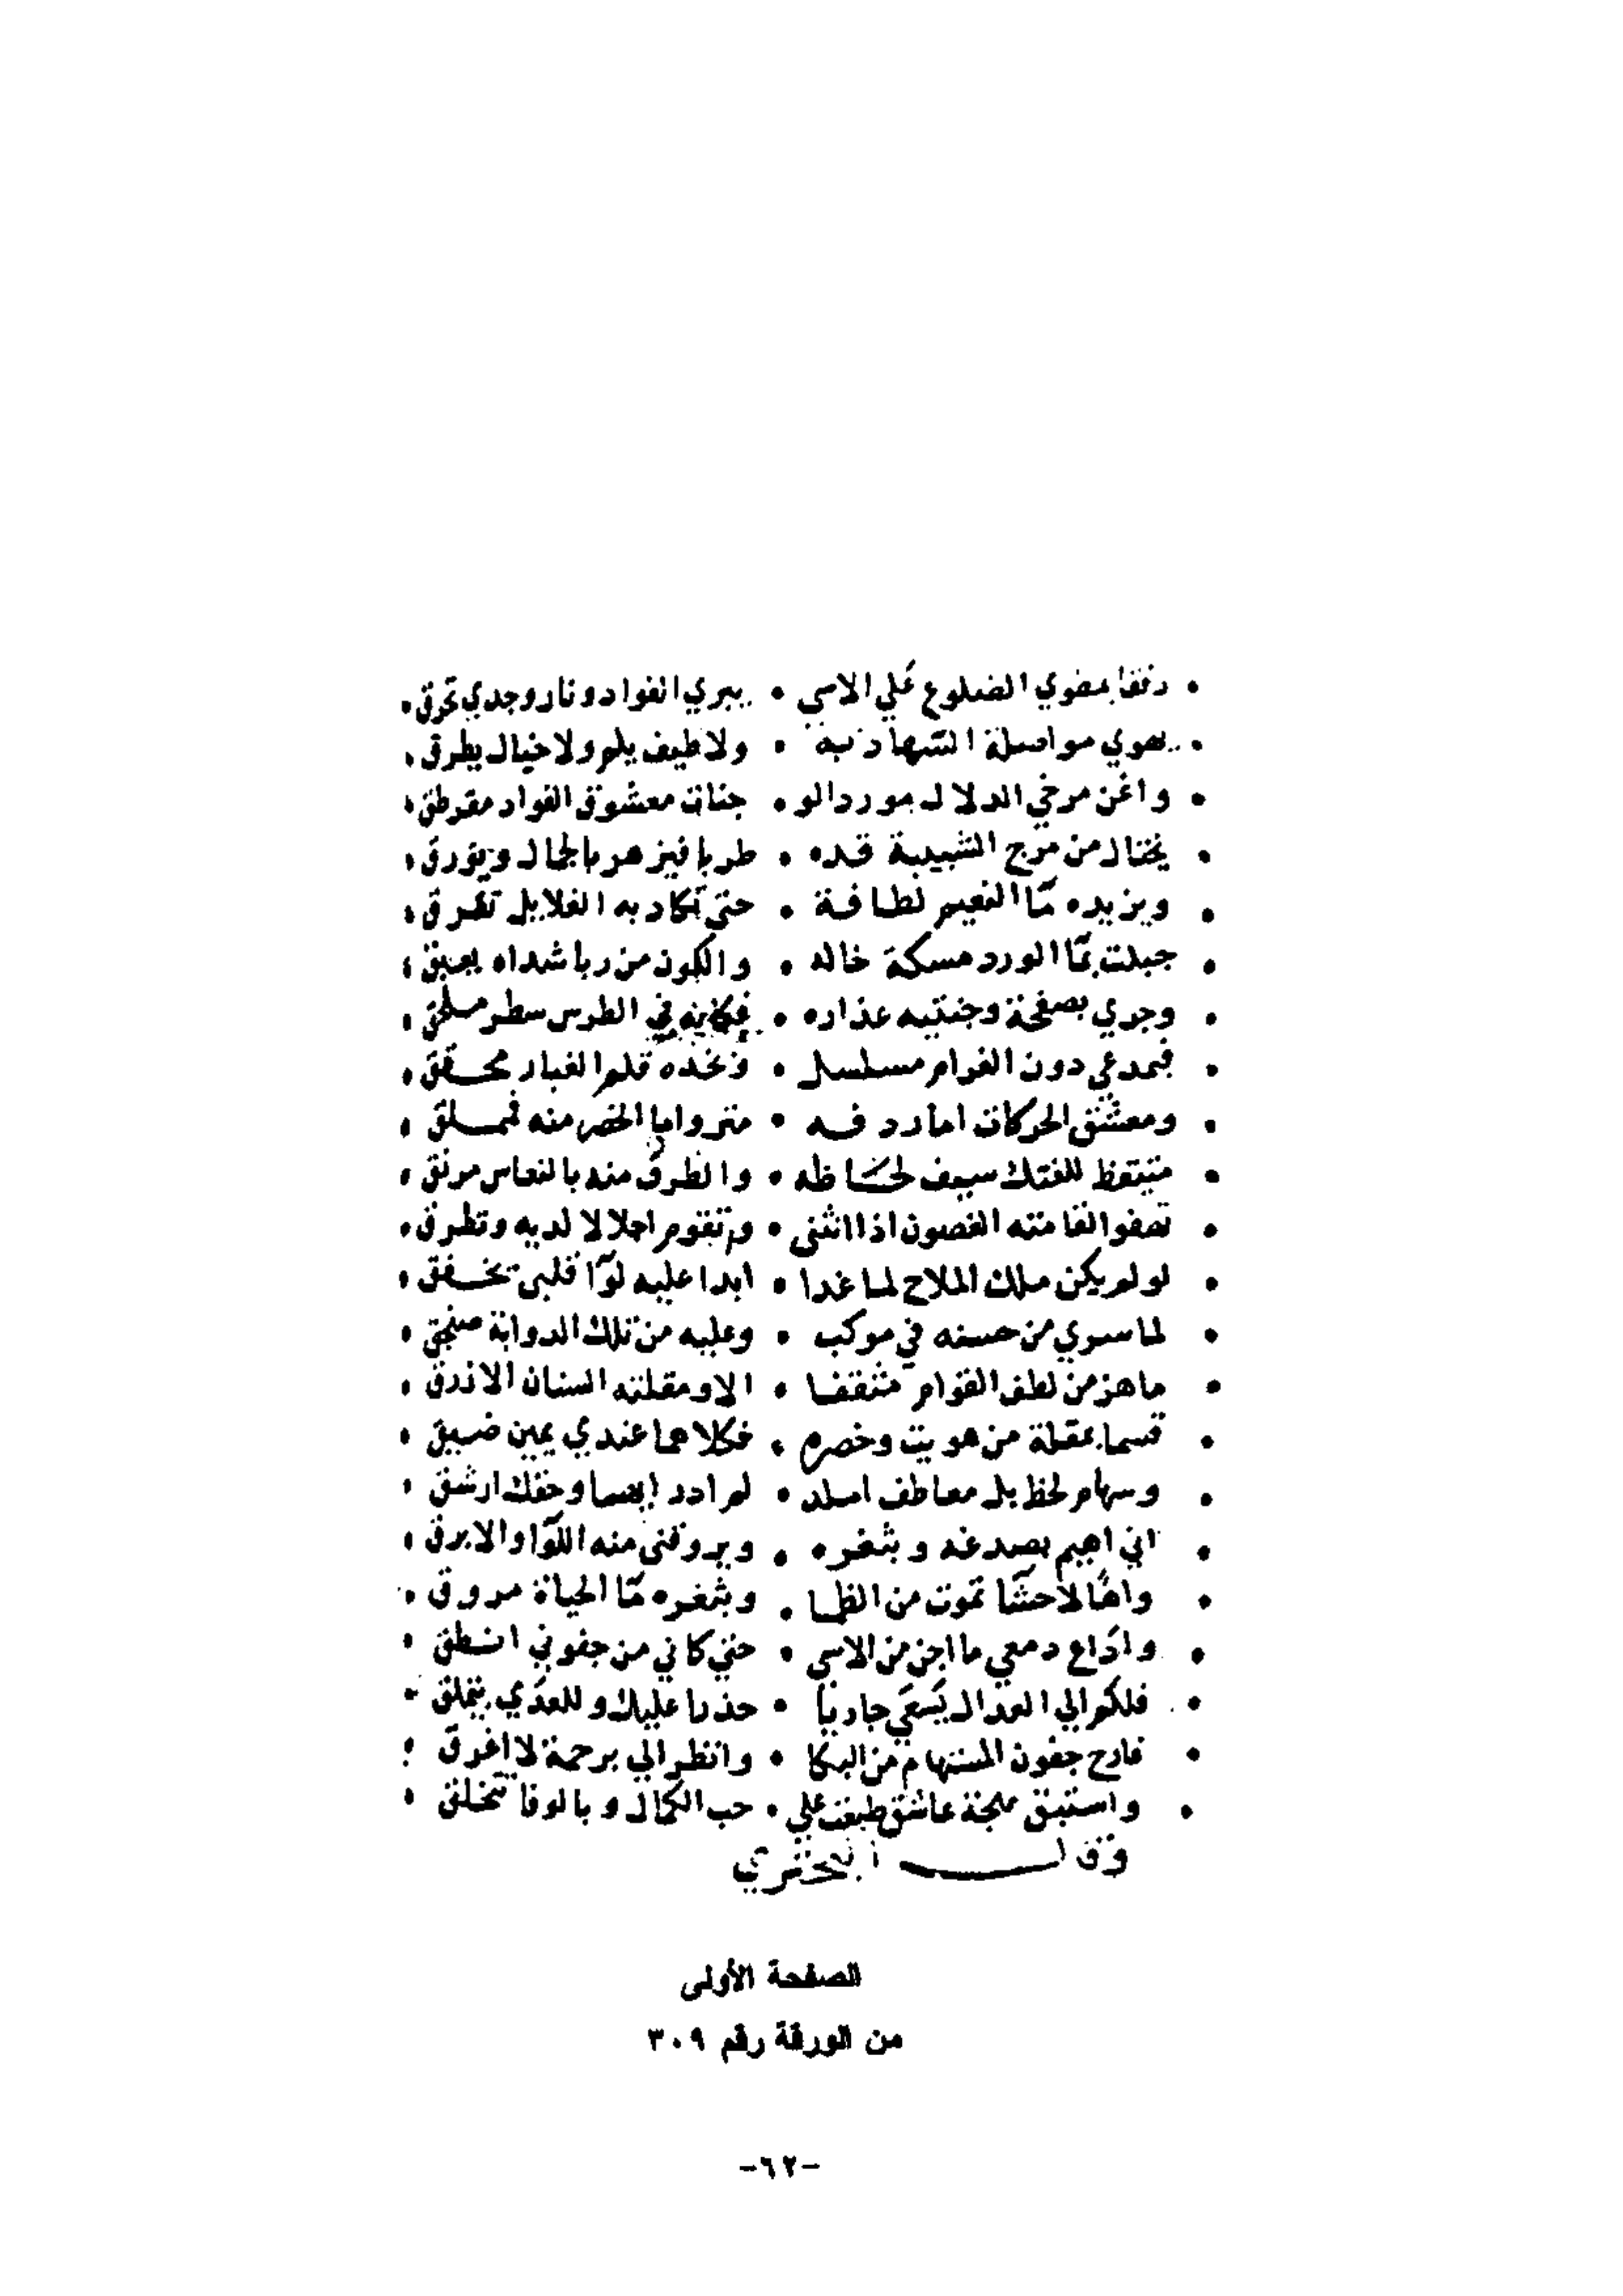 • رفقا بمضوي الضلوع علي الاسي • يبري الفواد ونار وجدي تحرق •
• يهوي مواصلة السهاد به • ولا طيف يلم ولا خيال يطرق •
• واغن مرخي الدلال مورد الو • جنات معشوق الفواد مقرطق •
• يختال من مرح الشبيبة قده • طربا فيزهر بالجمال ويورق •
• ويزيده مآ النعيم لطافة • حتي تكاد به الغلايل تغرق •
• جبلت بمآ الورد مسكة خاله • والكون من ريا شداه يعبق •
• وجري بصفحة وجنتيه عذاره • فكانه في الطرس سطر ملحق •
• فبمدعي دون الغرام مسلسل • وبخده قلم الغبار محقق •
• ومعشق الحركات اما ردفه • مثر واما الخصر منه فمملق •
• متيقظ للفتك سيف لحاظه • والطرف منه بالنعاس مرنق •
• تصفوا لقامته الغصون اذا انثني • وتقوم اجلالا لديه وتطرق •
• لو لم يكن ملك الملاح لما غدا • ابدا عليه لوآ قلبي يخفق •
• لما سري من حسنه في موكب • وعليه من تلك الدوابة صنجق •
• ما هز من لطف القوام مثقفا • الا ومقلته السنان الازرق •
• قسما بمقلة من هويت وخصره • فكلاهما عندي يمين ضيق •
• وسهام لحظ بل معاطف املد • لم ادر ايهما وحقك ارشق •
• اني اهيم بصدغه وبثغره • ويروقني منه اللوآ والابرق •
• واها لاحشا تموت من الظما • وبثغره مآ الحياة مروق •
• واذاع دمعي ما اجن من الاسي • حتي كاني من جفوني انطق •
• فلكم الي العدال يسعي جاريا • حذرا عليك وللعدي يتملق •
• فارح جفون المستهام من البكا • وانظر الي برحمة لا اغرق •
• واستبق مهجة عاشق طبعت علي • حب الكمال وبالوفا تتخلق •
وقال البحتري
الصفحة الأولى
من الورقة رقم ٣٠٩
-٦٢-